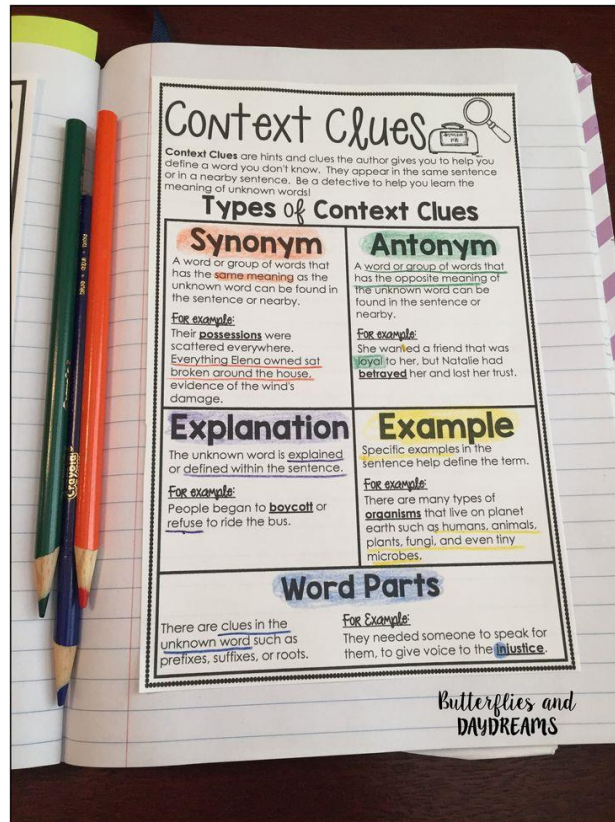 Context Clues
Context Clues are hints and clues the author gives you to help you
define a word you don't know. They appear in the same sentence
or in a nearby sentence. Be a detective to help you learn the
meaning of unknown words!
Types of Context Clues
Synonym
A word or group of words that
has the same meaning as the
unknown word can be found in
the sentence or nearby.
For example:
Their possessions were
scattered everywhere.
Everything Elena owned sat
broken around the house,
evidence of the wind's
damage.
Antonym
A word or group of words that
has the opposite meaning of
the unknown word can be
found in the sentence or
nearby.
For example:
She wanted a friend that was
loyal to her, but Natalie had
betrayed her and lost her trust.
Explanation
The unknown word is explained
or defined within the sentence.
For example:
People began to boycott or
refuse to ride the bus.
Example
Specific examples in the
sentence help define the term.
For example:
There are many types of
organisms that live on planet
earth such as humans, animals,
plants, fungi, and even tiny
microbes.
Word Parts
There are clues in the
unknown word such as
prefixes, suffixes, or roots.
For Example:
They needed someone to speak for
them, to give voice to the injustice.
Crayola
Butterflies and
DAYDREAMS